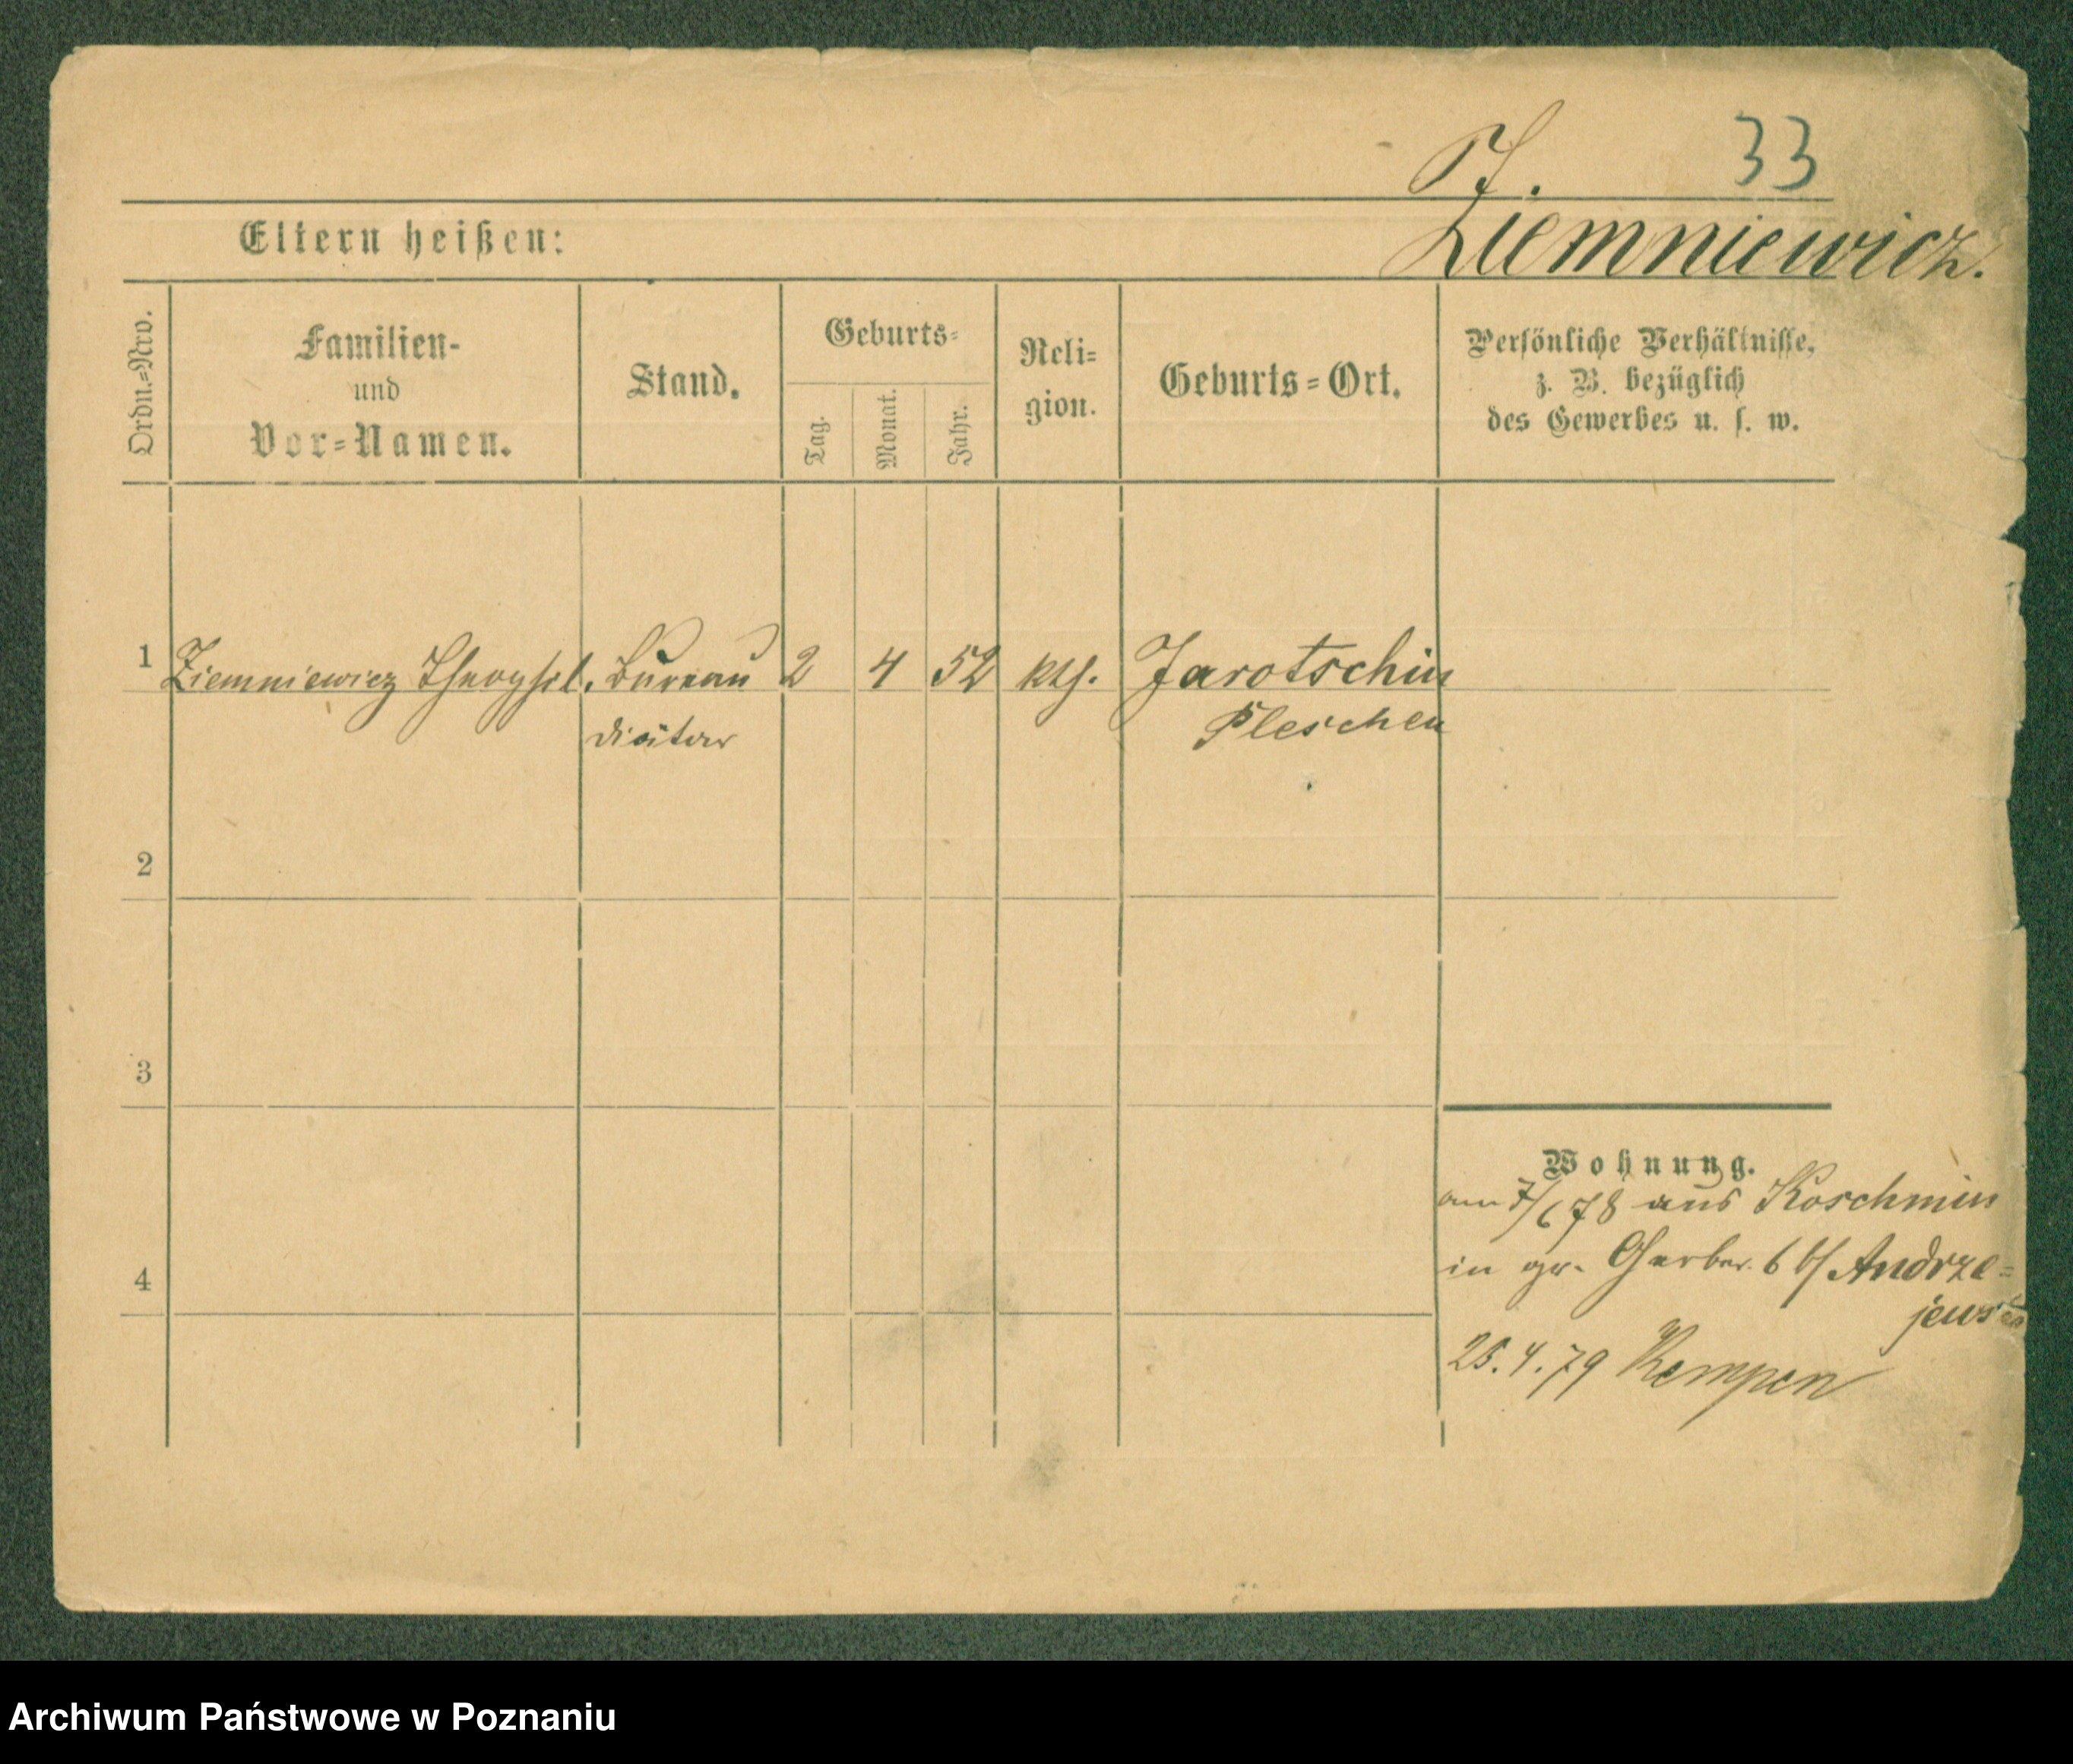 J. 33
Ziemniewicz.
Eltern heißen:
Ordn.=Nro.
Familien-
und
Vor=Namen.
Stand.
Geburts=
Tag.
Monat.
Jahr.
Reli=
gion.
Geburts=Ort.
Persönliche Verhältnisse,
z. B. bezüglich
des Gewerbes u. s. w.
1 Ziemniewicz Theophil. Bureau 2 4 52 kth. Jarotschin
diätar Pleschen
2
3
Wohnung.
am 7/6 78 aus Koschmin
in gr. Gerber. 6 b/ Andrze=
4
25.4.79 Kempen
Archiwum Państwowe w Poznaniu